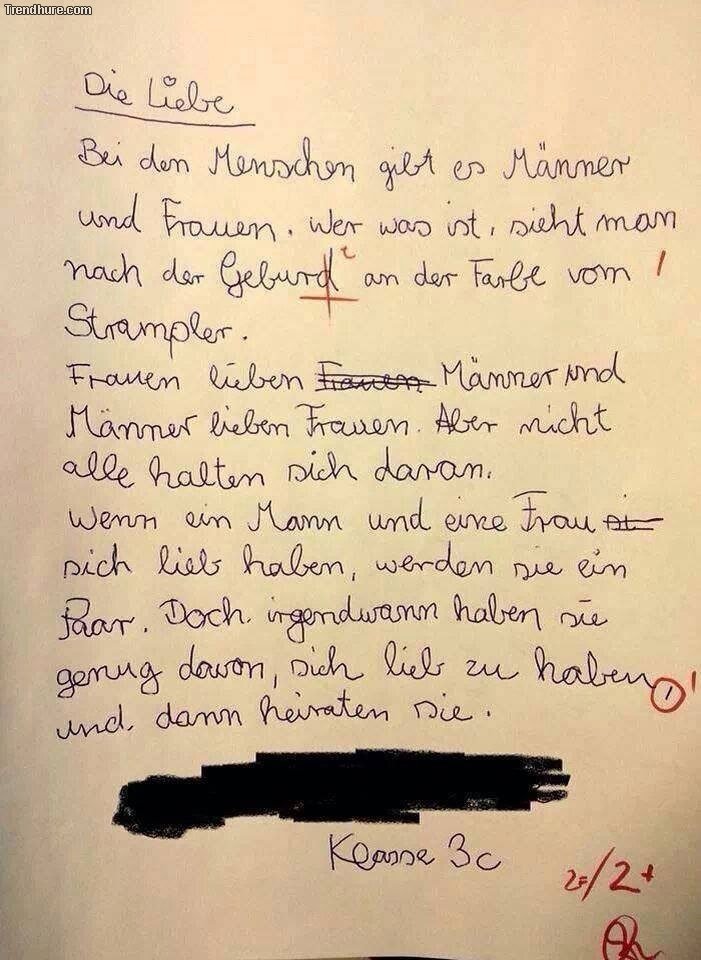 Trendhure.com
Die Liebe
Bei den Menschen gibt es Männer
und Frauen. Wer was ist, sieht man
nach der Geburd t an der Farbe vom
Strampler.
Frauen lieben Frauen Männer und
Männer lieben Frauen. Aber nicht
alle halten sich daran.
Wenn ein Mann und eine Frau
sich lieb haben, werden sie ein
Paar. Doch irgendwann haben sie
genug davon, sich lieb zu haben,
und dann heiraten sie.
Klasse 3c
2=/2+